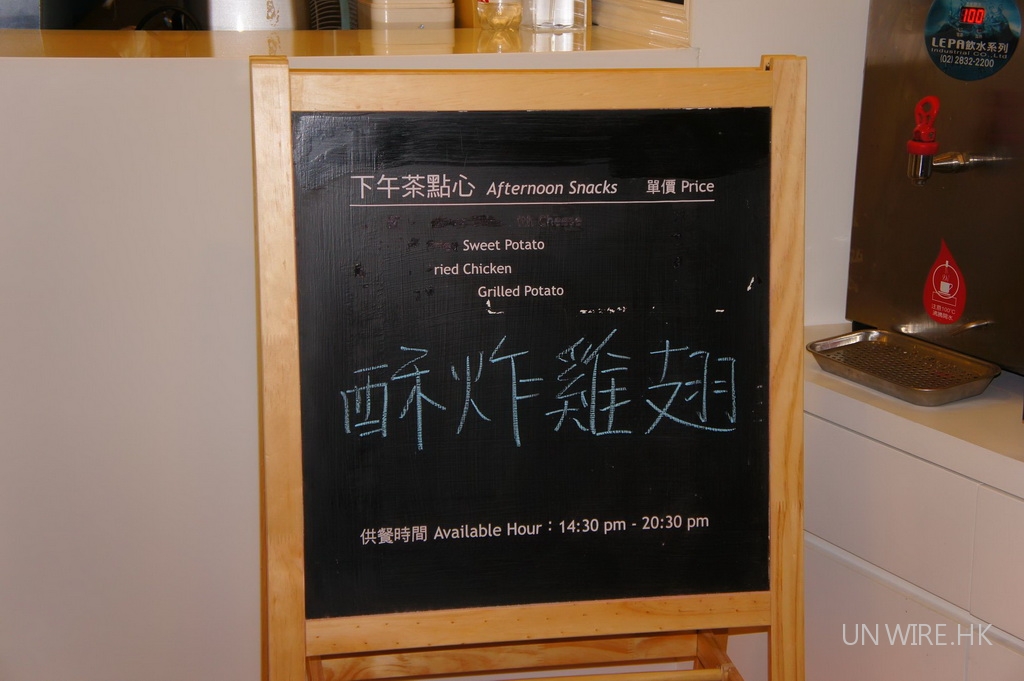 下午茶點心 Afternoon Snacks 單價 Price
Cheese
Sweet Potato
ried Chicken
Grilled Potato
酥炸雞翅
供餐時間 Available Hour：14:30 pm - 20:30 pm
100
LEPA飲水系列
Industrial CO.,Ltd
(02) 2832-2200
UNWIRE.HK